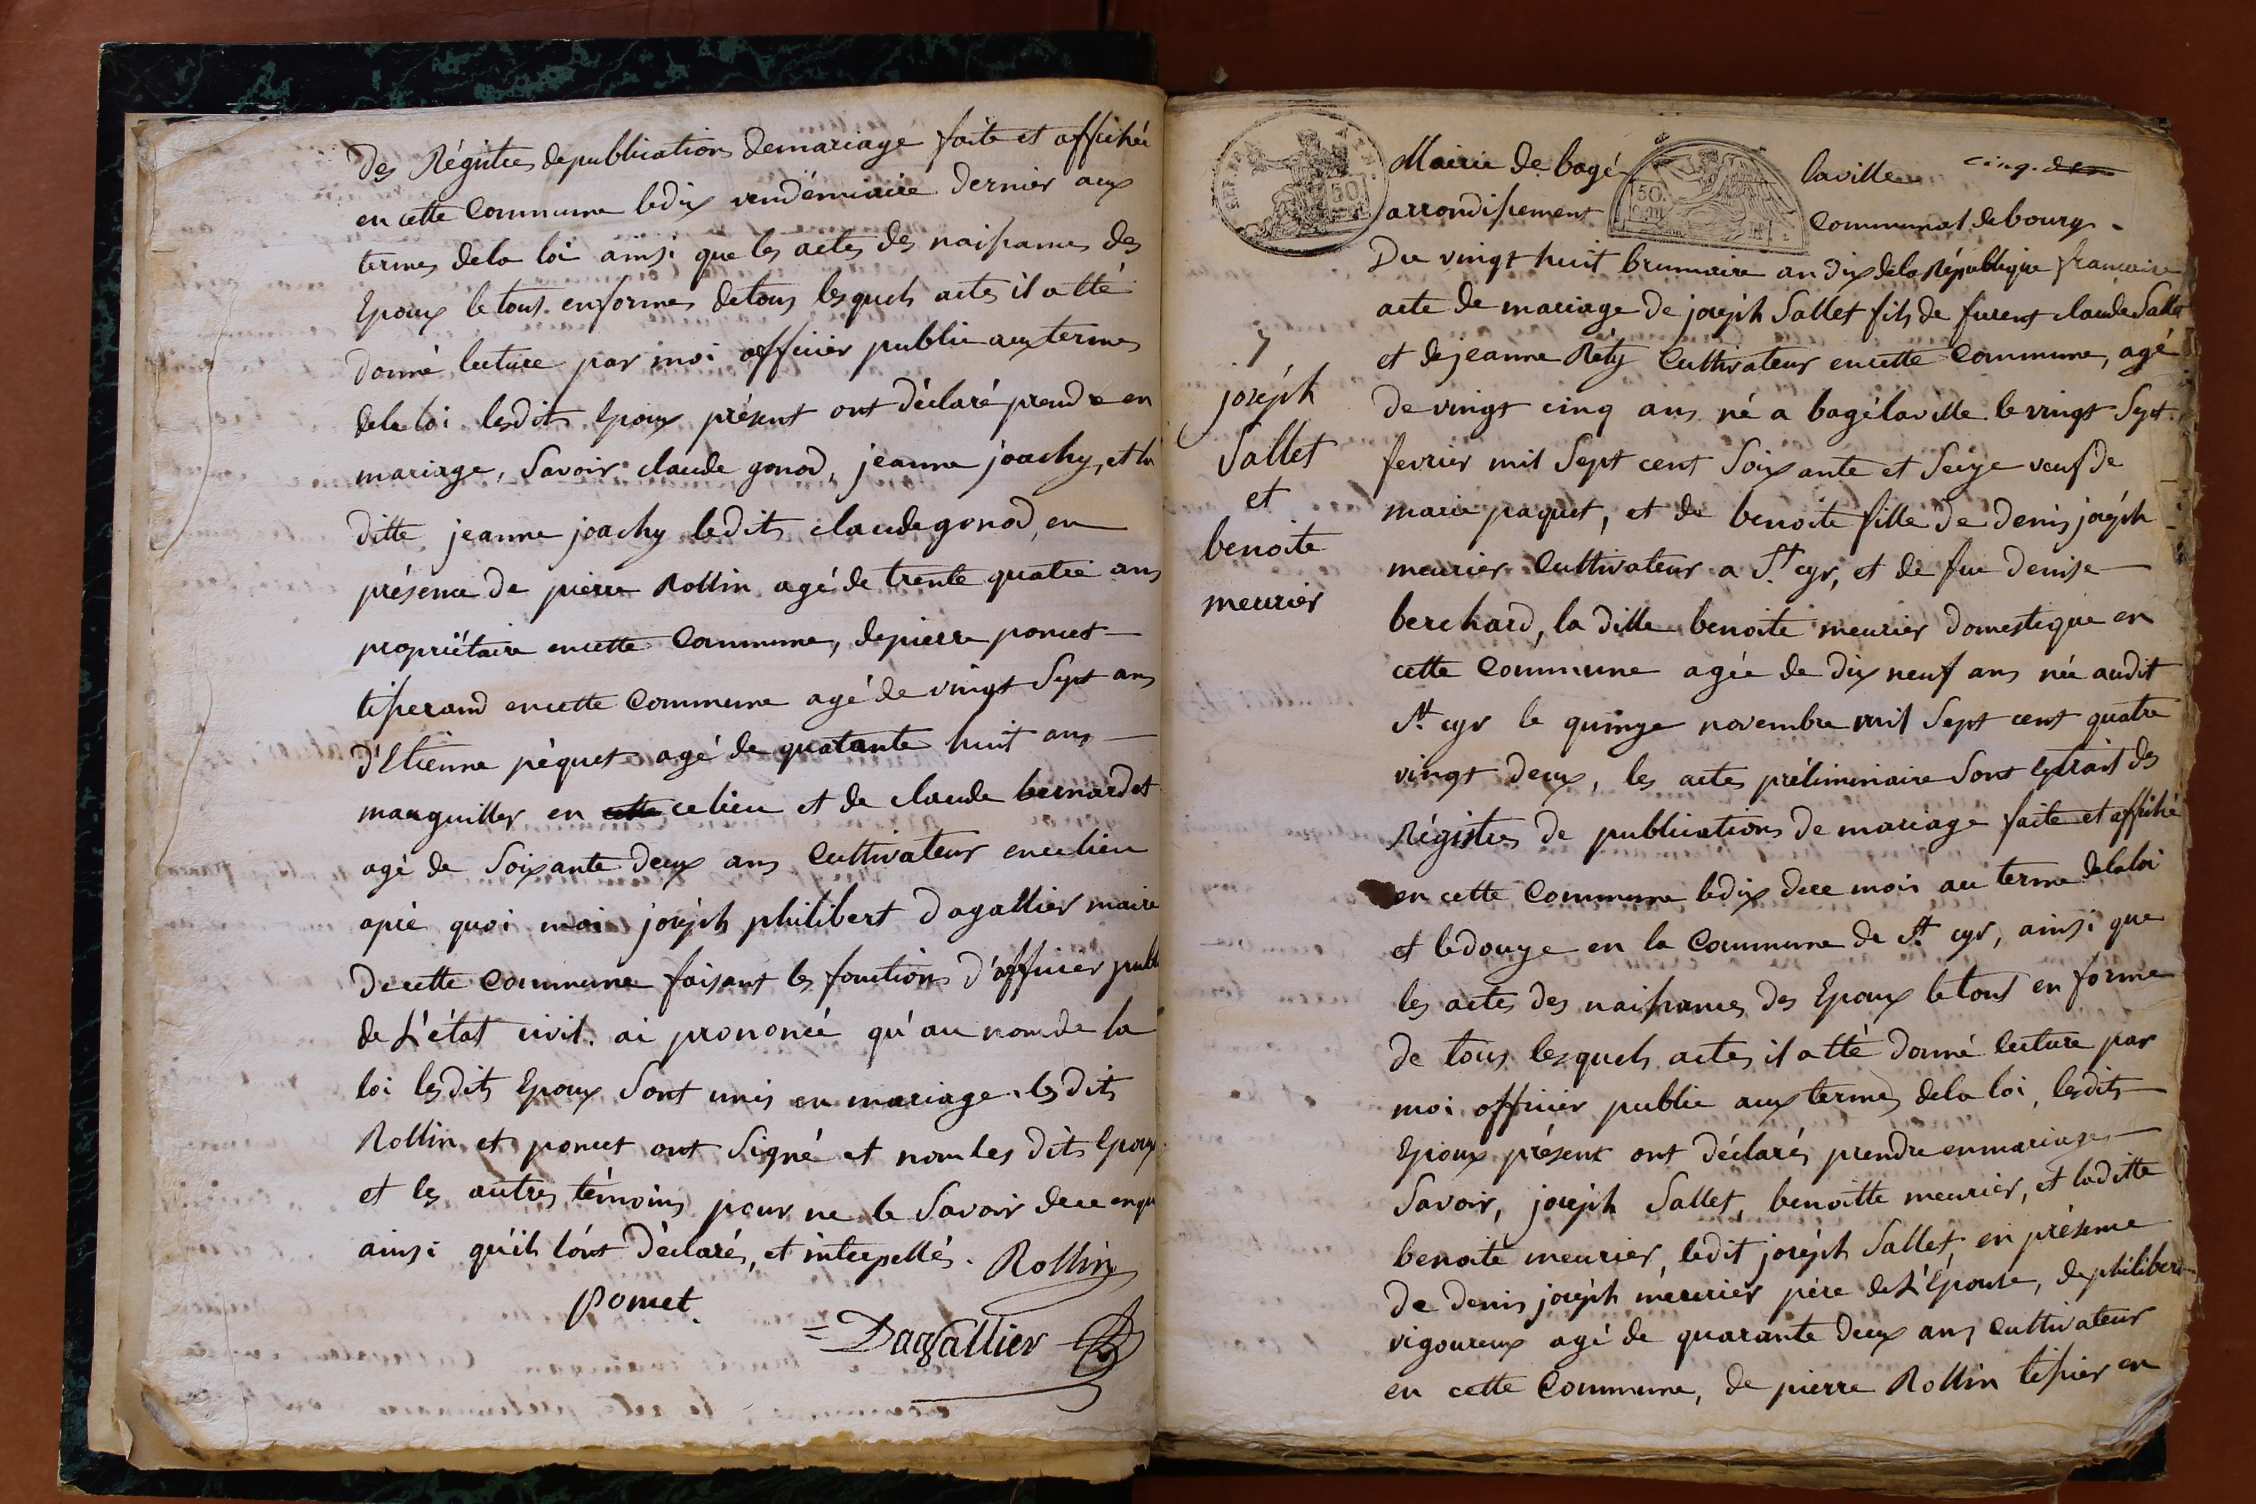 des Régistres depublications demariage faite et affiché
en cette Commune ledix vendémiaire dernier aux
termes dela loi ainsi que les actes des naissances des
Epoux letout enformes detous lesquels actes il a été
donné lecture par moi officier public aux termes
dela loi lesdits Epoux présent ont déclaré prendre en
mariage, Savoir claude gonod, jeanne joachy, et la
ditte jeanne joachy ledit claude gonod, en
présence de pierre Rollin agé de trente quatre ans
propriétaire encette Commune, depierre poncet
tisserand encette Commune agé de vingt Sept ans
d'Etienne péquet agé de quatante huit ans
marguiller en cette celieu et de claude bernardet
agé de Soixante deux ans Cultivateur encelieu
apré quoi moi joséph philibert dagallier maire
decette Commune faisant les fonctions d'officier publ
de L'état civil. ai prononcé qu'au nom de la
loi lesdits Epoux Sont unis en mariage. lesdits
Rollin et poncet ont Signé et non les dits Epoux
et les autres témoins pour ne le Savoir dece enqu
ainsi qu'ils l'ont déclarés, et interpellés. Rollin
poncet.
= Dagallier
cinq. dem
Mairie de bagé laville
arrondissement Communal debourg.
50
50.
Du vingt huit brumaire an dix dela République francaise
acte de mariage de joséph Sallet fils de furent claude Sallet
et dejeanne Réty Cultivateur encette Commune, agé
de vingt cinq ans né a bagélaville le vingt Sept
fevrier mil Sept cent Soixante et Seize veuf de
marie paquet, et de benoite fille de denis joséph
meurier Cultivateur a St. cyr, et de fue denise
berchard, la ditte benoite meurier domestique en
cette Commune agée de dix neuf ans née audit
St. cyr le quinze novembre mil Sept cent quatre
vingt deux, les actes préliminaire Sont Extrait des
Régistres de publications de mariage faite et affiché
en cette Commune ledix dece mois au terme delaloi
et ledouze en la Commune de St. cyr, ainsi que
les actes des naissances des Epoux letout en forme
de tous lesquels actes il a été donné lecture par
moi officier public aux termes dela loi, lesdits
Epoux présent ont déclarés prendre enmariage
Savoir, joséph Sallet, benoitte meurier, et laditte
benoite meurier, ledit joséph Sallet, en présence
de denis joséph meurier pére deL'Epouse, dephilibert
vigoureux agé de quarante deux ans Cultivateur
en cette Commune, de pierre Rollin tissier en
7
joséph
Sallet
et
benoite
meurier